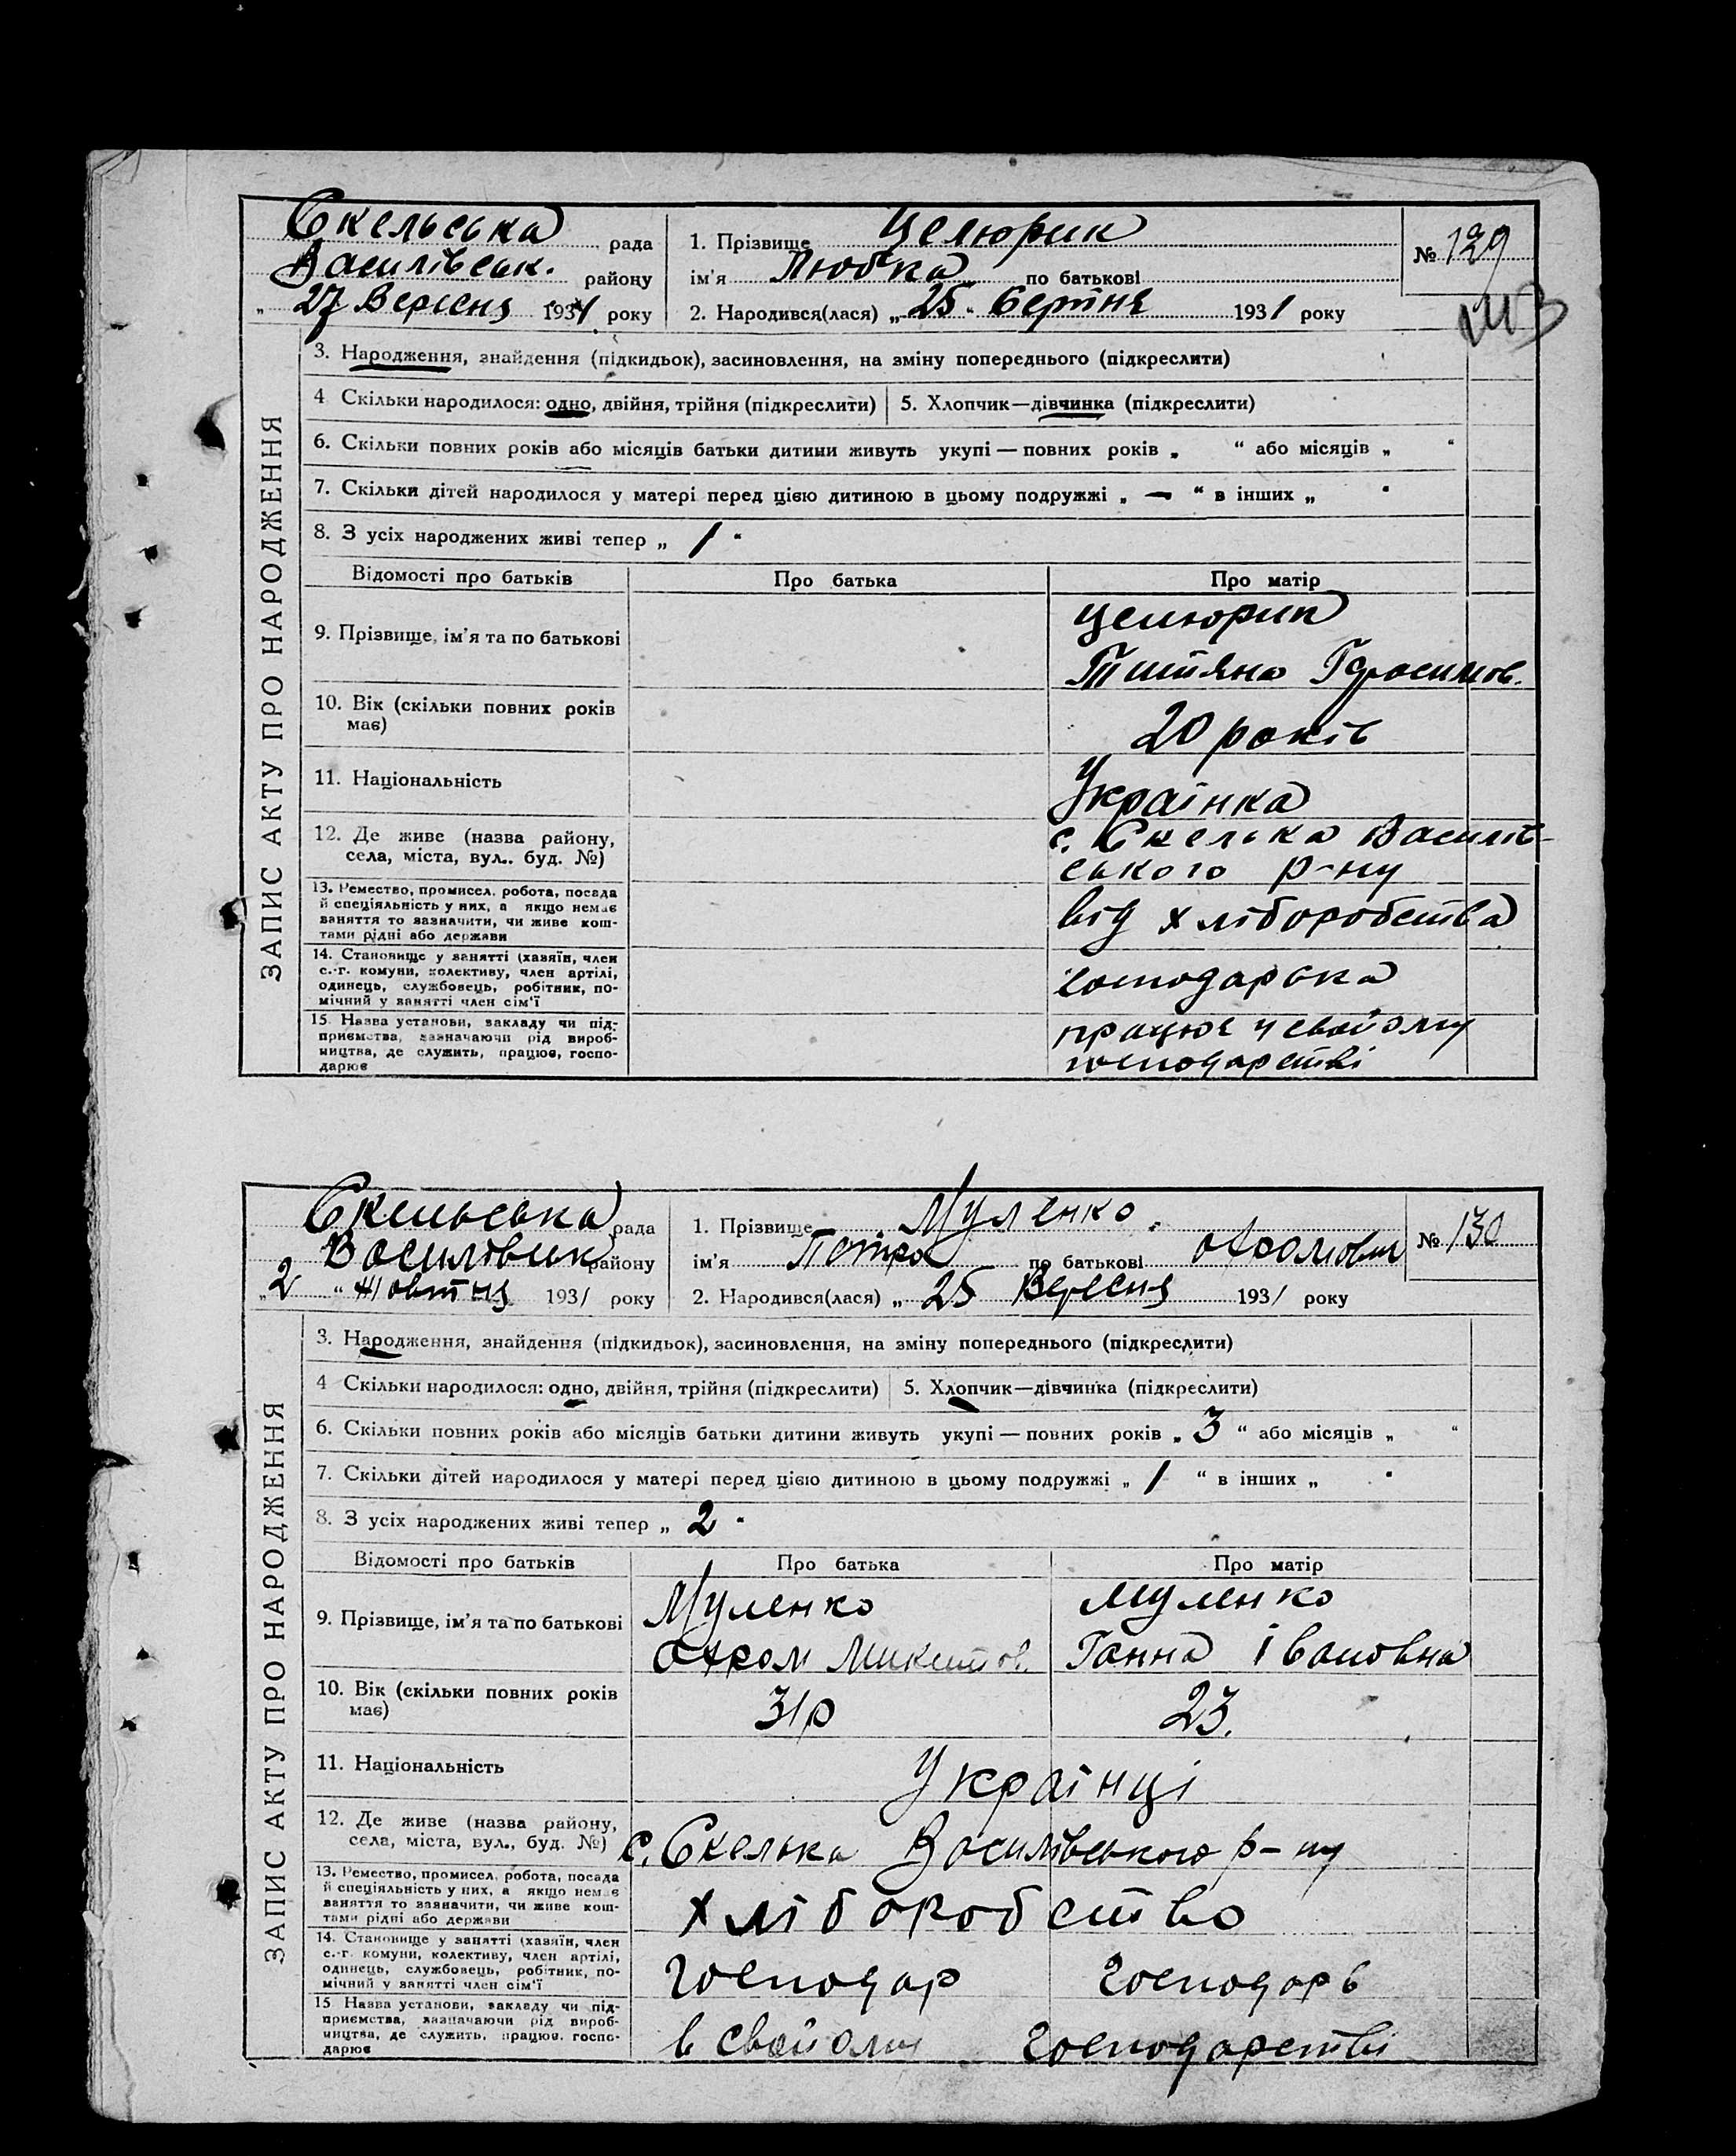 ЗАПИС АКТУ ПРО НАРОДЖЕННЯ
Скельська рада
Василівськ. району
„ 27 Вересня 1931 року
1. Прізвище Целюрик
ім'я Любка по батькові
2. Народився(лася) „ 25 “ 1931 року
№ 129
3. Народження, знайдення (підкидьок), засиновлення, на зміну попереднього (підкреслити)
4 Скільки народилося: одно, двійня, трійня (підкреслити)
5. Хлопчик—дівчинка (підкреслити)
6. Скільки повних років або місяців батьки дитини живуть укупі — повних років „ “ або місяців „ “
7. Скільки дітей народилося у матері перед цією дитиною в цьому подружжі „ — “ в інших „ “
8. З усіх народжених живі тепер „ 1 “
Відомості про батьків
Про батька
Про матір
9. Прізвище, ім'я та по батькові
Целюрик
Герасимов.
10. Вік (скільки повних років
має)
20 років
11. Національність
Українка
12. Де живе (назва району,
села, міста, вул.. буд. №)
с. Скелька Василів-
ського р-ну
13. Ремество, промисел, робота, посада
й спеціяльність у них, а якщо немає
заняття то зазначити, чи живе кош-
тами рідні або держави
від хліборобства
14. Становище у занятті (хазяїн, член
с.-г. комуни, колективу, член артілі,
одинець, службовець, робітник, по-
мічний у занятті член сім'ї
15. Назва установи, закладу чи під-
приємства, зазначаючи рід вироб-
ництва, де служить, працює, госпо-
дарює
працює у свойому
господарстві
ЗАПИС АКТУ ПРО НАРОДЖЕННЯ
Скельська рада
району
„ 2 “ Жовтня 1931 року
1. Прізвище Муленко.
ім'я Петро по батькові
2. Народився(лася) „ 25 Вересня 1931 року
№ 130
3. Народження, знайдення (підкидьок), засиновлення, на зміну попереднього (підкреслити)
4 Скільки народилося: одно, двійня, трійня (підкреслити)
5. Хлопчик—дівчинка (підкреслити)
6. Скільки повних років або місяців батьки дитини живуть укупі — повних років „ 3 “ або місяців „ “
7. Скільки дітей народилося у матері перед цією дитиною в цьому подружжі „ 1 “ в інших „ “
8. З усіх народжених живі тепер „ 2 “
Відомості про батьків
Про батька
Про матір
9. Прізвище, ім'я та по батькові
Муленко
Муленко
Ганна Івановна
10. Вік (скільки повних років
має)
31р
23.
11. Національність
Українці
12. Де живе (назва району,
села, міста, вул., буд. №)
с. Скелька Василівського р-ну
13. Ремество, промисел, робота, посада
й спеціяльність у них, а якщо немає
заняття то зазначити, чи живе кош-
тами рідні або держави
хліборобство
14. Становище у занятті (хазяїн, член
с.-г. комуни, колективу, член артілі,
одинець, службовець, робітник, по-
мічний у занятті член сім'ї
господар
15 Назва установи, закладу чи під-
приємства, зазначаючи рід вироб-
ництва, де служить, працює, госпо-
дарює
в свойому господарстві